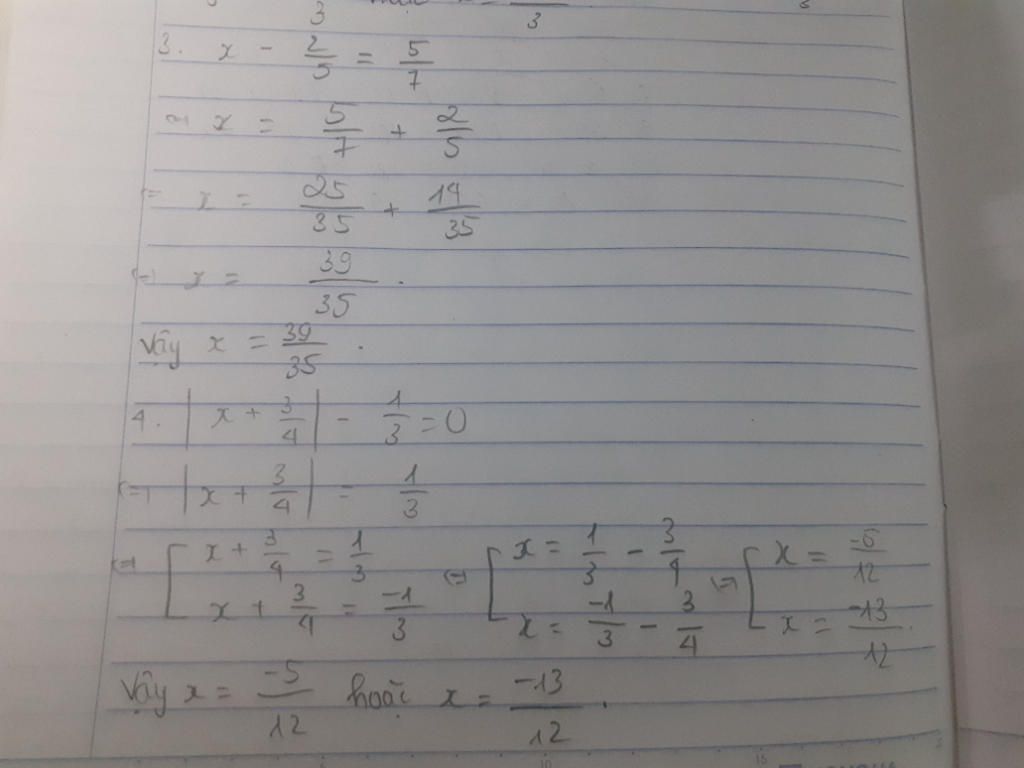 3
3
3. x - 2/5 = 5/7
x = 5/7 + 2/5
x = 25/35 + 14/35
(=) x = 39/35.
Vậy x = 39/35.
4. |x + 3/4| - 1/3 = 0
(=) |x + 3/4| = 1/3
(=) [ x + 3/4 = 1/3 (=) [ x = 1/3 - 3/4 (=) [ x = -5/12
x + 3/4 = -1/3 x = -1/3 - 3/4 x = -13/12.
Vậy x = -5/12 hoặc x = -13/12.
10 15